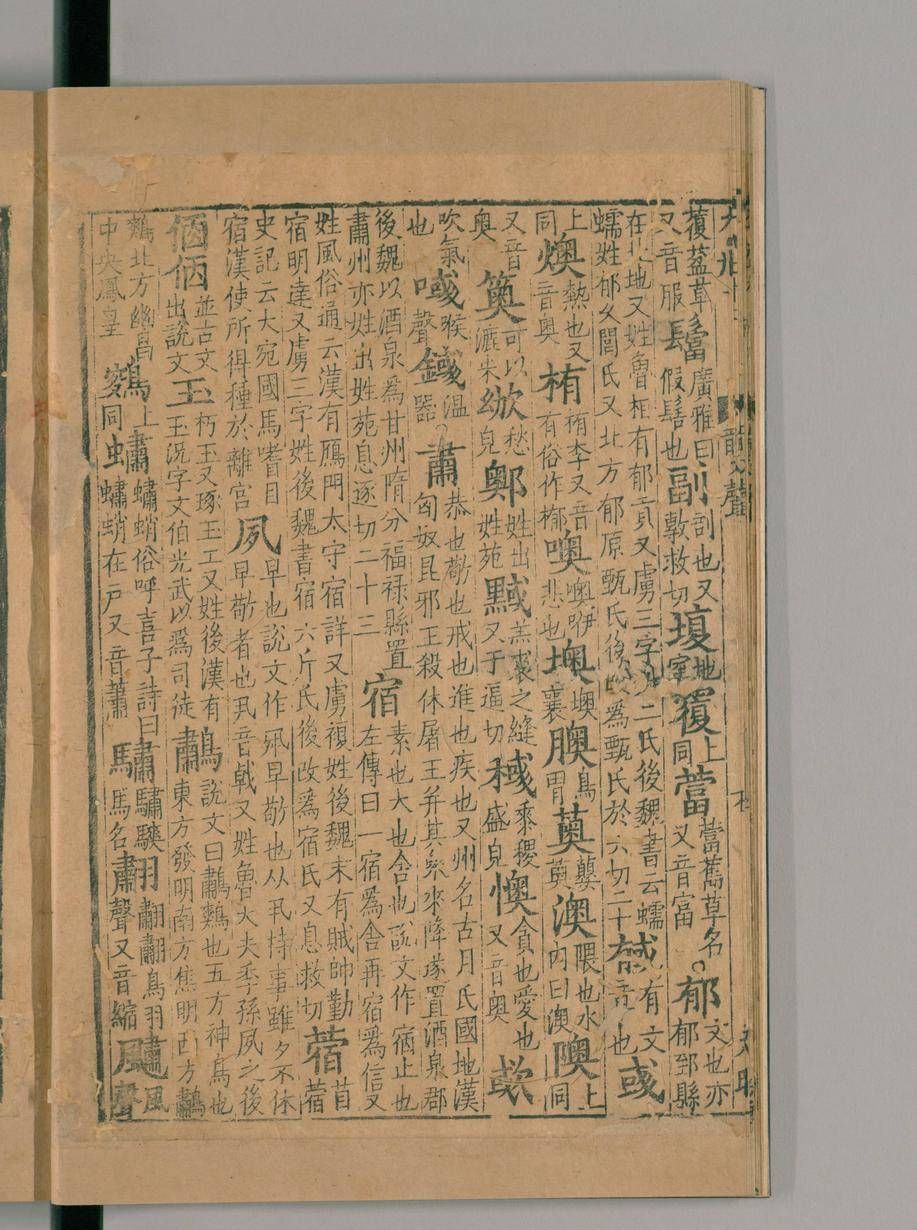 蕧葢草又音服 廣雅曰假髻也 副剖也又敷救切 地室 上同 葍葍蕾草名又音富 。郁文也亦郁郅縣
在北地又姓魯相有郁貢又虜三字姓二氏後魏書云蠕蠕姓郁久閭氏又北方郁原甄氏後改爲甄氏於六切二十 有文也 彧
上同 燠熱也又音奧 栯栯李又音有俗作 噢噢咿悲也 墺墺壤 䐿鳥胃 薁蘡薁 澳隈也水內曰澳 隩上同
又音奧 䉛可以漉米 愁皃 鄓姓出姓苑 黬羔裘之縫又于逼切 稢黍稷盛皃 懊貪也愛也又音奧 㰲
吹氣也 㖪喉聲 䥘温器 。肅恭也敬也戒也進也疾也又州名古月氏國地漢匈奴昆邪王殺休屠王并其衆來降遂置酒泉郡
後魏以酒泉爲甘州隋分福祿縣置肅州亦姓出姓苑息逐切二十三 宿素也大也舍也說文作㝛止也左傳曰一宿爲舍再宿爲信又
姓風俗通云漢有鴈門太守宿詳又虜複姓後魏末有賊帥勤宿明達又虜三字姓後魏書宿六斤氏後改爲宿氏又息救切 蓿苜蓿
史記云大宛國馬嗜目宿漢使所得種於離宮 夙早也說文作𡖊早敬也从丮持事雖夕不休早敬者也丮音戟又姓魯大夫季孫夙之後
㑉𠈇並古文出說文 玉朽玉又琢玉工又姓後漢有玉況字文伯光武以爲司徒 鷫說文曰鷫鷞也五方神鳥也東方發明南方焦明西方鷫
鷞北方幽昌中央鳳皇 上同 蟰蟰蛸俗呼喜子詩曰蟰蛸在戶又音蕭 驌驌驦馬名 鳥羽聲又音縮 風聲